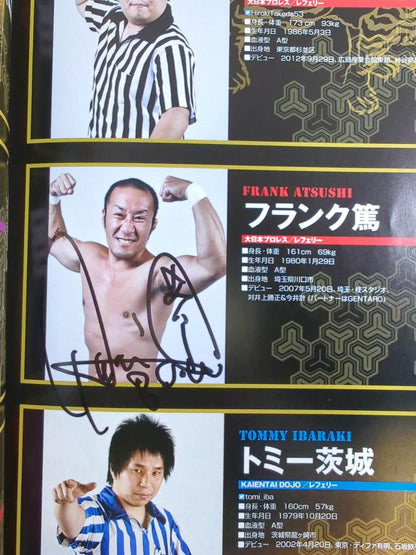 大日本プロレス／レフェリー
HirokiTakeda53
■身長・体重　173cm　93kg
■生年月日　1986年5月3日
■血液型　A型
■出身地　東京都杉並区
■デビュー　2012年9月29日、広島産業会館東館、
FRANK ATSUSHI
フランク篤
大日本プロレス／レフェリー
■身長・体重　161cm　69kg
■生年月日　1980年1月29日
■血液型　A型
■出身地　埼玉県川口市
■デビュー　2007年5月20日、埼玉・桂スタジオ、
対井上勝正&今井計（パートナーはGENTARO）
TOMMY IBARAKI
トミー茨城
KAIENTAI DOJO／レフェリー
tomi_iba
■身長・体重　160cm　57kg
■生年月日　1979年10月20日
■血液型　A型
■出身地　茨城県龍ヶ崎市
■デビュー　2002年4月20日、東京・ディファ有明、